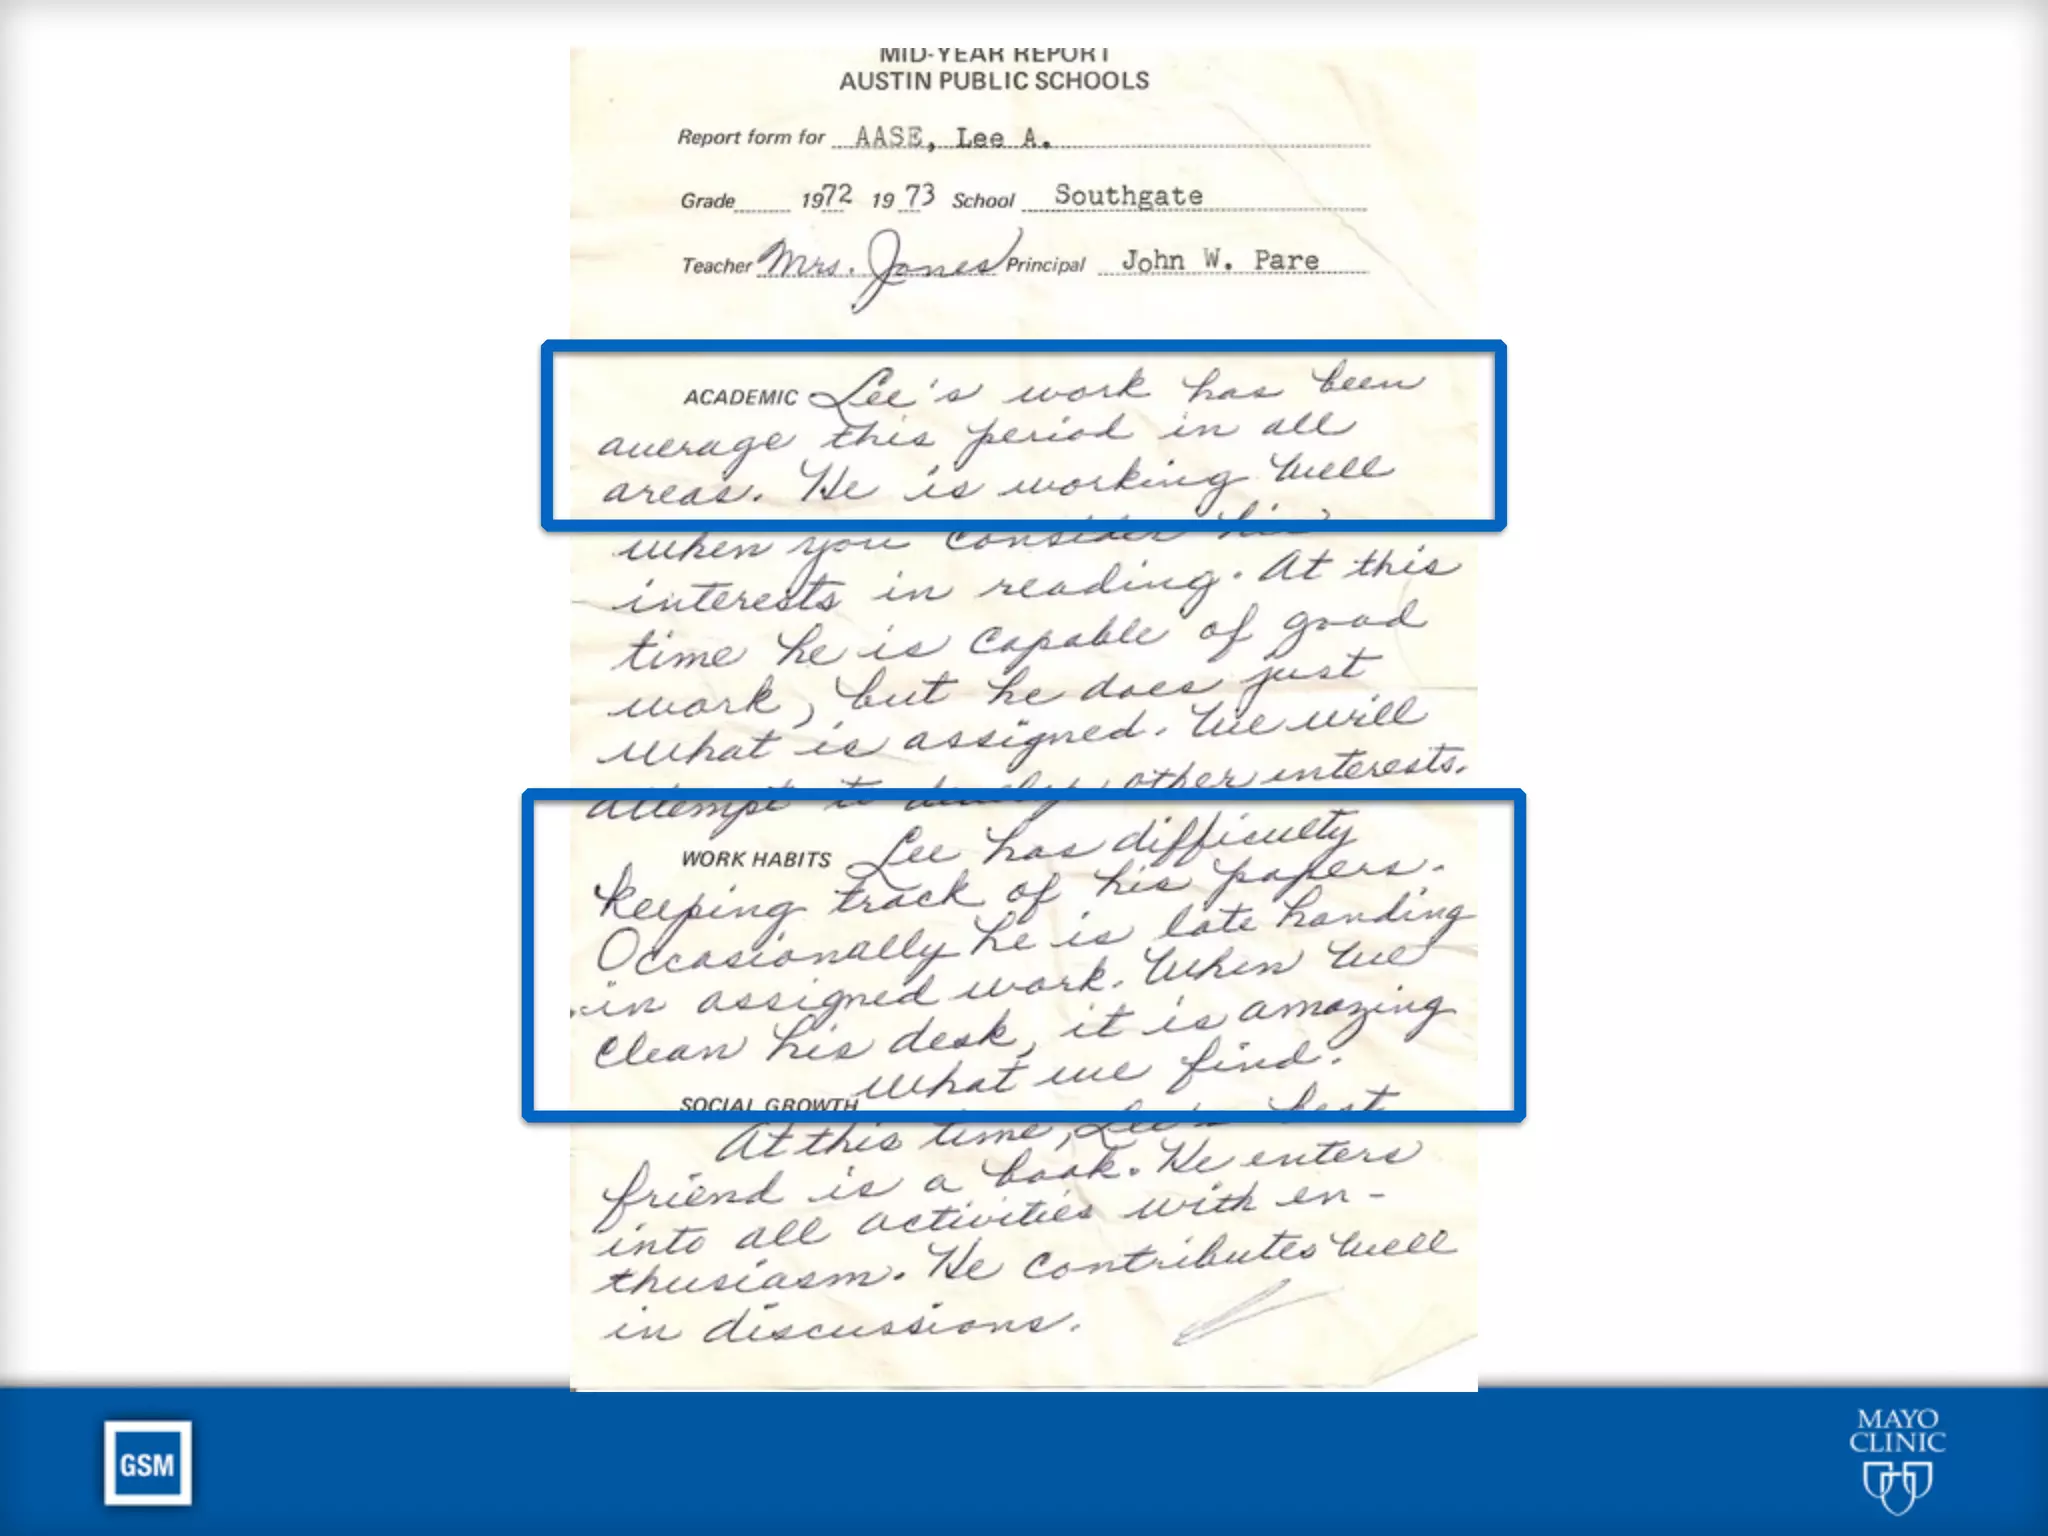 MID-YEAR REPORT
AUSTIN PUBLIC SCHOOLS
Report form for AASE, Lee A.
Grade 1972 1973 School Southgate
Teacher Mrs. Jones Principal John W. Pare
ACADEMIC Lee's work has been
average this period in all
areas. He is working well
when you consider his
interests in reading. At this
time he is capable of good
work, but he does just
what is assigned. We will
attempt to develop other interests.
WORK HABITS Lee has difficulty
keeping track of his papers.
Occasionally he is late handing
in assigned work. When we
clean his desk, it is amazing
what we find.
SOCIAL GROWTH
At this time, Lee's best
friend is a book. He enters
into all activities with en-
thusiasm. He contributes well
in discussions.
GSM
MAYO
CLINIC